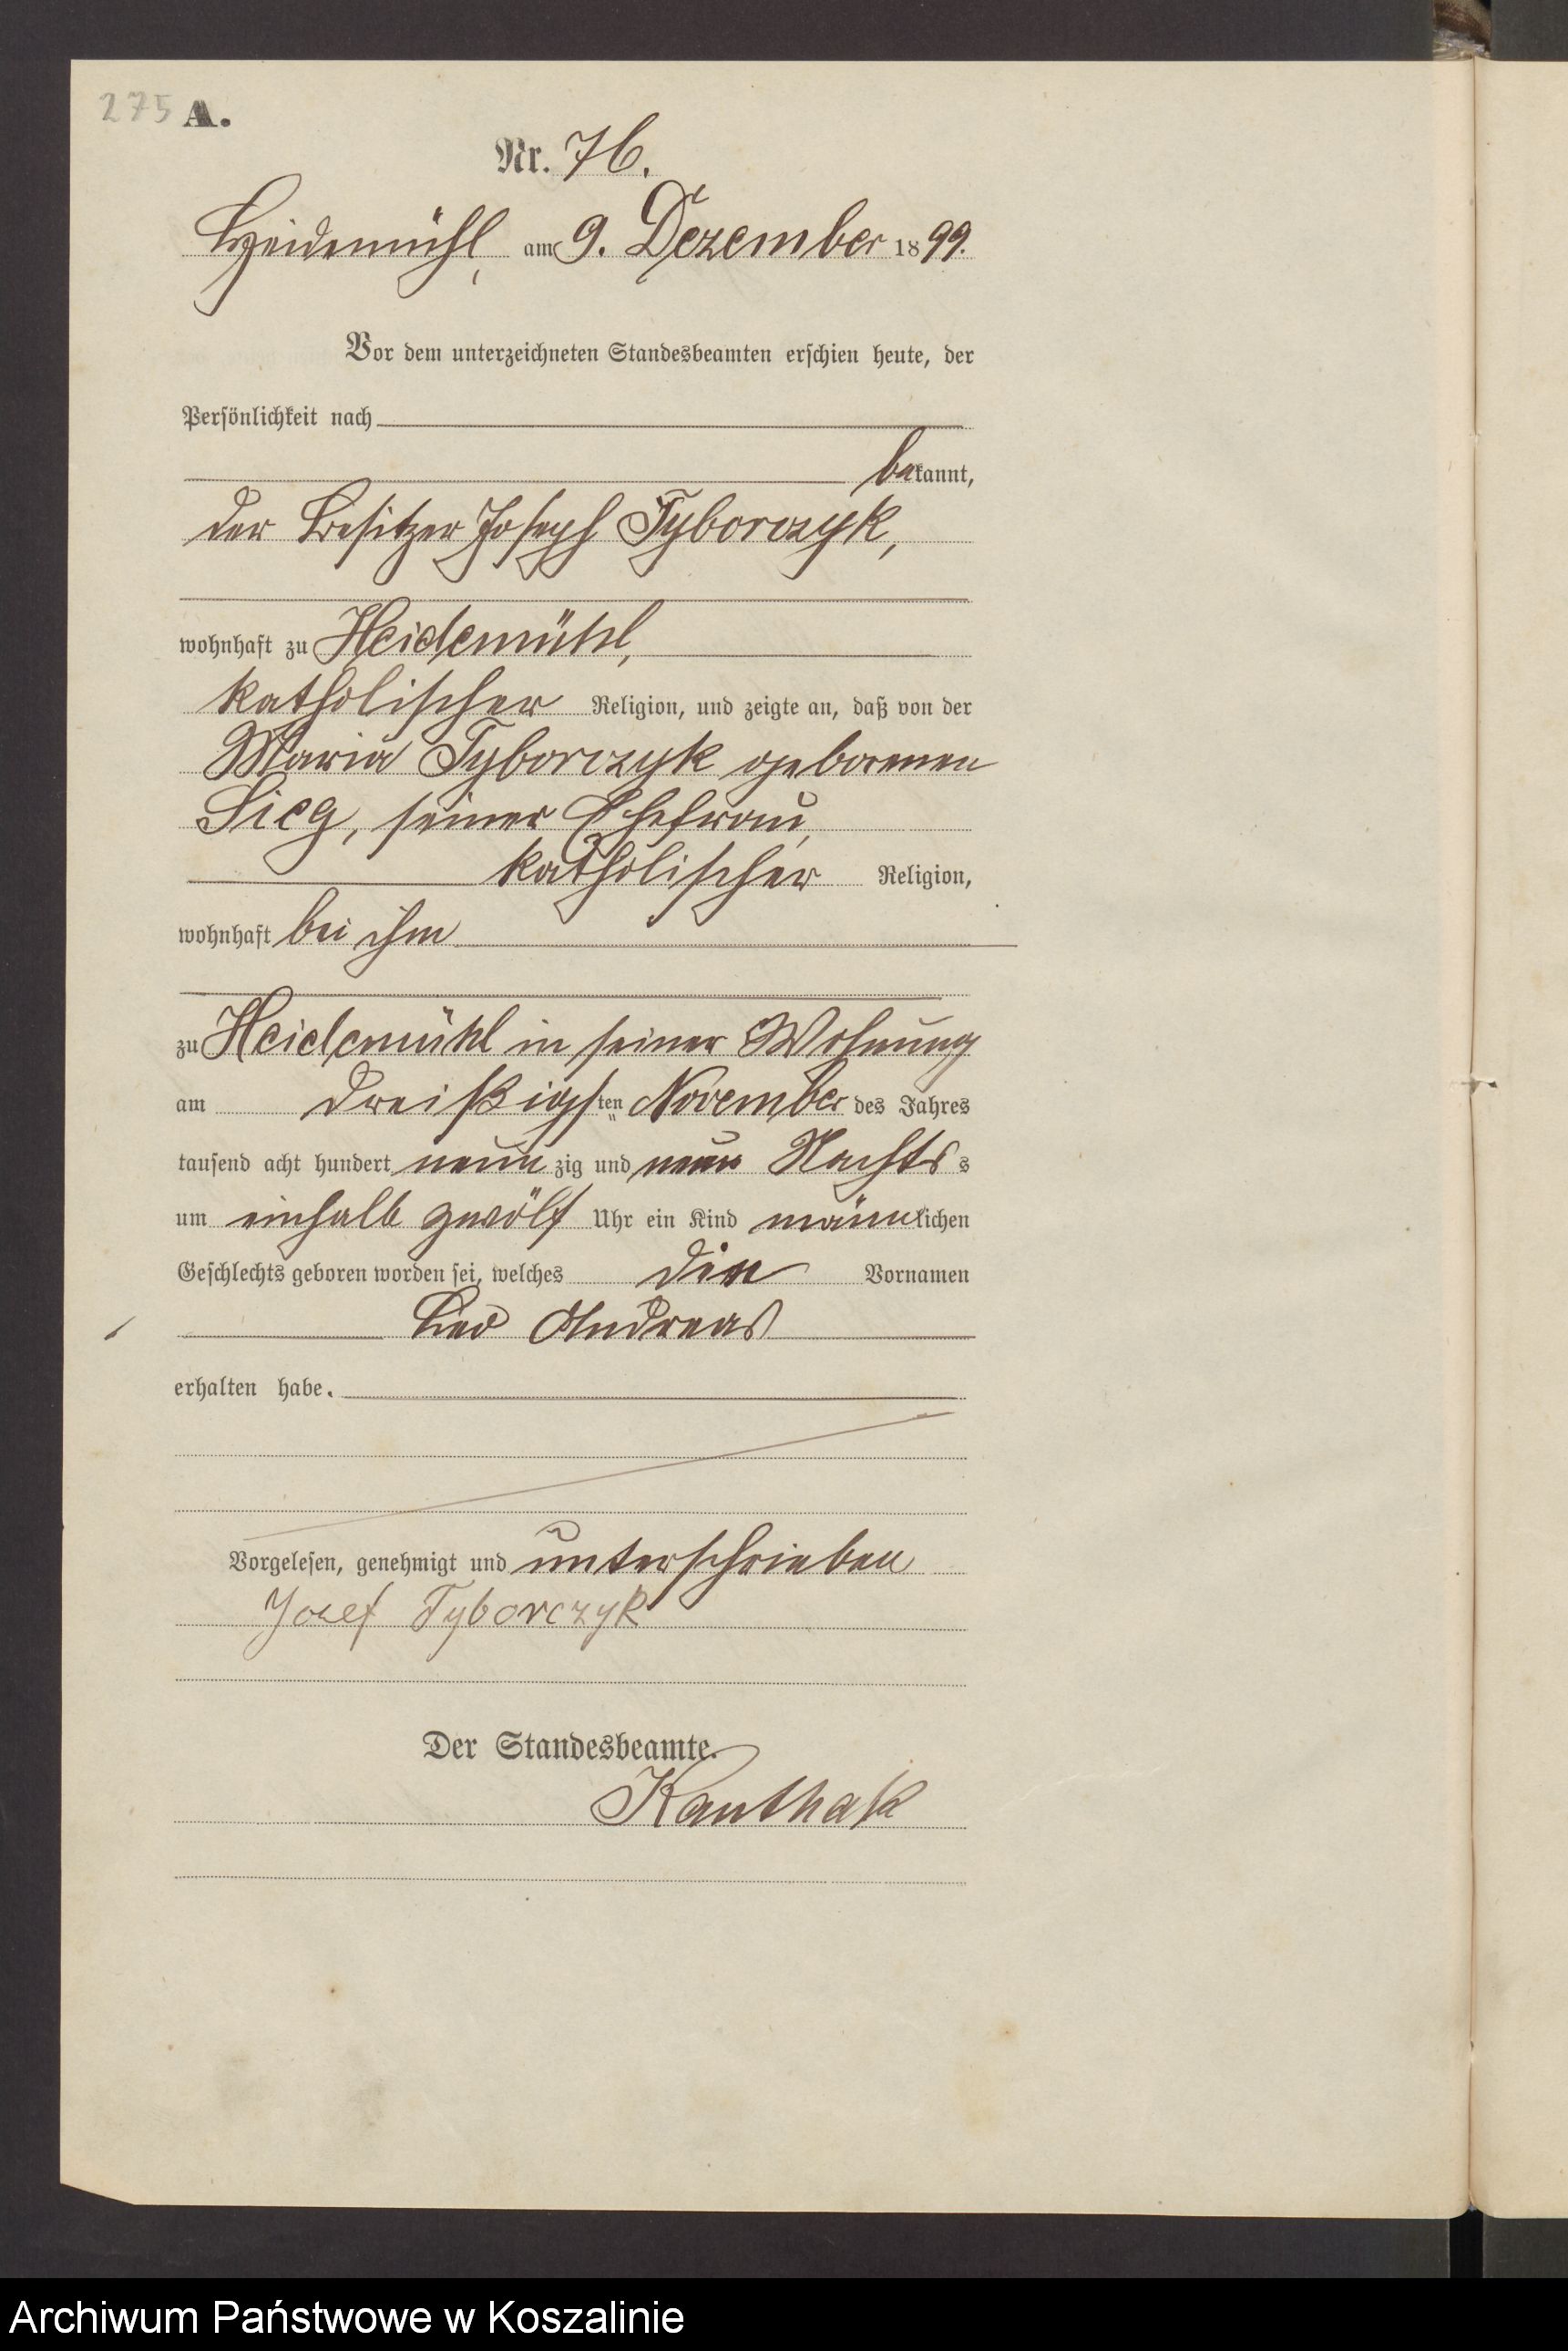 275 A.
Nr. 76.
Heidemühl, am 9. Dezember 1899.
Vor dem unterzeichneten Standesbeamten erschien heute, der
Persönlichkeit nach
bekannt,
der Besitzer Joseph Tyborczyk,
wohnhaft zu Heidemühl,
katholischer Religion, und zeigte an, daß von der
Maria Tyborczyk geborenen
Sieg, seiner Ehefrau,
katholischer Religion,
wohnhaft bei ihm
zu Heidemühl in seiner Wohnung
am dreißigsten November des Jahres
tausend acht hundert neunzig und neun Nachts
um einhalb zwölf Uhr ein Kind männlichen
Geschlechts geboren worden sei, welches die Vornamen
Leo Andreas
erhalten habe.
Vorgelesen, genehmigt und unterschrieben
Josef Tyborczyk
Der Standesbeamte.
Kanthak
Archiwum Państwowe w Koszalinie